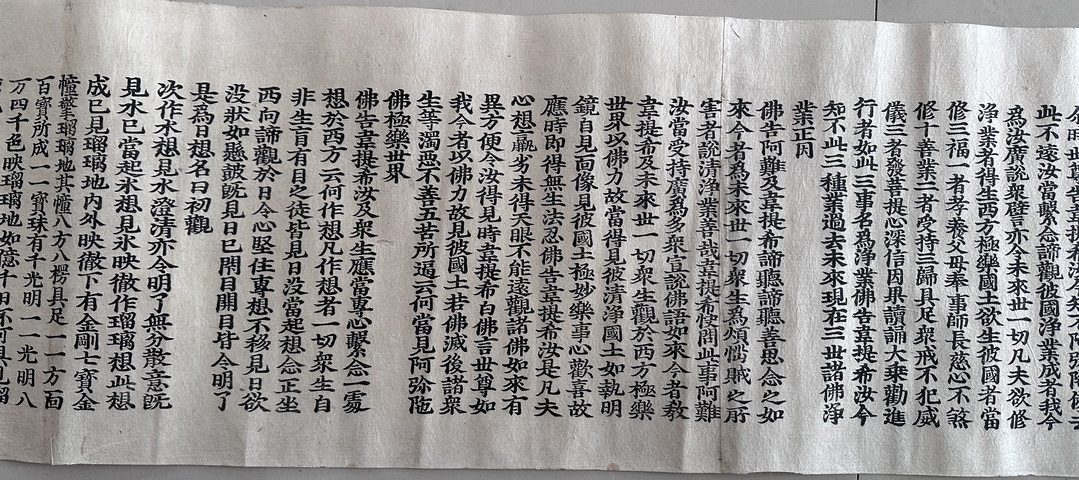 此不遠汝當繫念諦觀彼國淨業成者我今
為汝廣說眾譬亦令未來世一切凡夫欲修
淨業者得生西方極樂國土欲生彼國者當
修三福一者孝養父母奉事師長慈心不煞
修十善業二者受持三歸具足眾戒不犯威
儀三者發菩提心深信因果讀誦大乘勸進
行者如此三事名為淨業佛告韋提希汝今
知不此三種業過去未來現在三世諸佛淨
業正因
佛告阿難及韋提希諦聽諦聽善思念之如
來今者為未來世一切眾生為煩惱賊之所
害者說清淨業善哉韋提希快問此事阿難
汝當受持廣為多眾宣說佛語如來今者教
韋提希及未來世一切眾生觀於西方極樂
世界以佛力故當得見彼清淨國土如執明
鏡自見面像見彼國土極妙樂事心歡喜故
應時即得無生法忍佛告韋提希汝是凡夫
心想羸劣未得天眼不能遠觀諸佛如來有
異方便令汝得見時韋提希白佛言世尊如
我今者以佛力故見彼國土若佛滅後諸眾
生等濁惡不善五苦所逼云何當見阿弥陁
佛極樂世界
佛告韋提希汝及眾生應當專心繫念一處
想於西方云何作想凡作想者一切眾生自
非生盲有目之徒皆見日沒當起想念正坐
西向諦觀於日令心堅住專想不移見日欲
沒狀如懸鼓既見日已閇目開目皆令明了
是為日想名曰初觀
次作水想見水澄清亦令明了無分散意既
見水已當起氷想見氷映徹作瑠璃想此想
成已見瑠璃地內外映徹下有金剛七寶金
幢擎瑠璃地其幢八方八楞具足一一方面
百寶所成一一寶珠有千光明一一光明八
万四千色映瑠璃地如億千日不可具見瑠